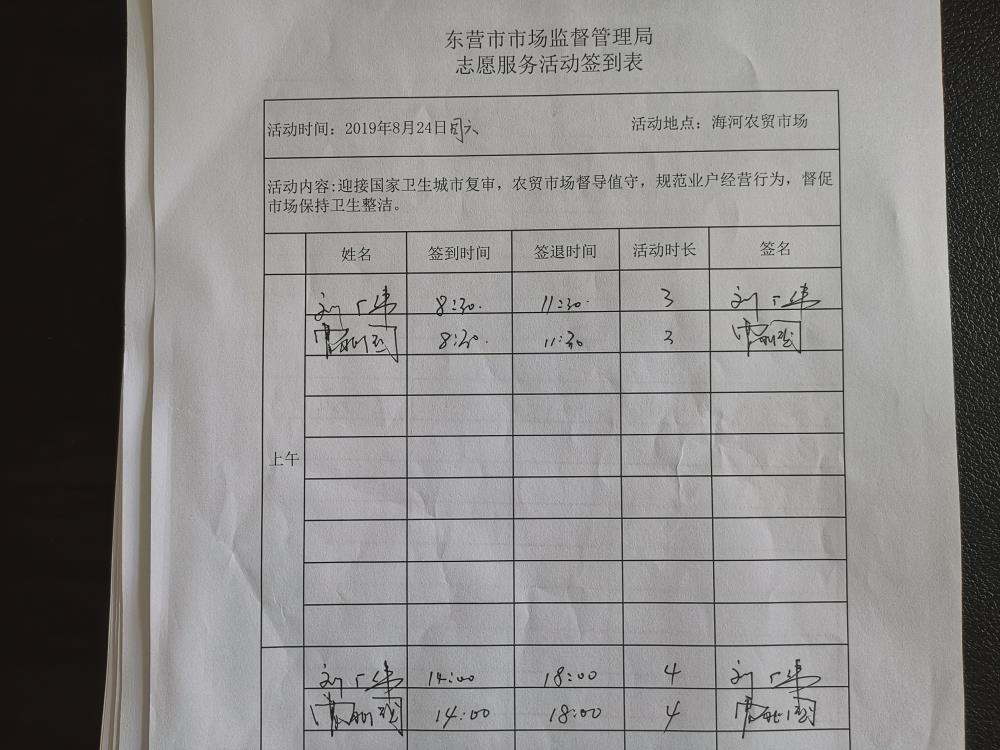 东营市市场监督管理局
志愿服务活动签到表
活动时间：2019年8月24日周六 活动地点：海河农贸市场
活动内容:迎接国家卫生城市复审，农贸市场督导值守，规范业户经营行为，督促
市场保持卫生整洁。
姓名 签到时间 签退时间 活动时长 签名
刘 8:30. 11:30. 3 刘
8:30. 11:30 3
上午
刘 14:00 18:00 4 刘
14:00 18:00 4